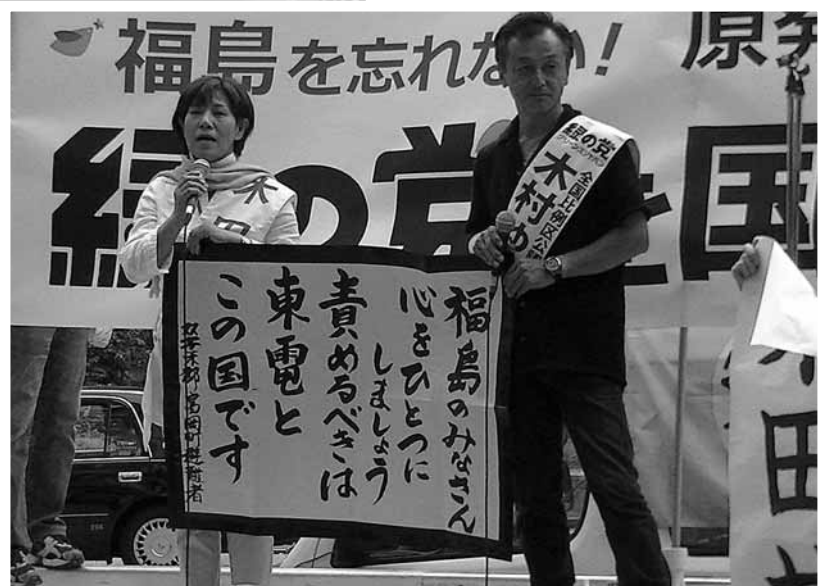 福島を忘れない!
原発
緑の党
国
緑の党
グリーンズジャパン
全国比例区公認
木村ゆ
木田
福島のみなさん
心をひとつに
しましょう
責めるべきは
東電と
この国です
双葉郡富岡町避難者
木田